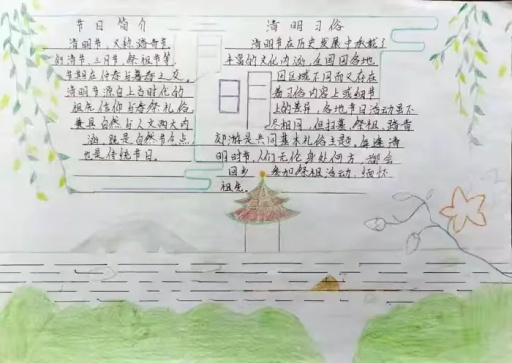 节日简介
清明节，又称踏青节
行清节、三月节、祭祖节等，
节期在仲春与暮春之交。
清明节源自上古时代的
祖先信仰与春祭礼俗，
兼具自然与人文两大内
涵，既是自然节气点
也是传统节日。
清明习俗
清明节在历史发展中承载了
丰富的文化内涵，全国因各地
因区域不同而又存在
着习俗内容上或细节
上的差异，各地节日活动虽不
尽相同，但扫墓、祭祖、踏青
郊游是共同基本礼俗主题。每逢清
明时节，人们无论身处何方，都会
回乡参加祭祖活动，缅怀
祖先。